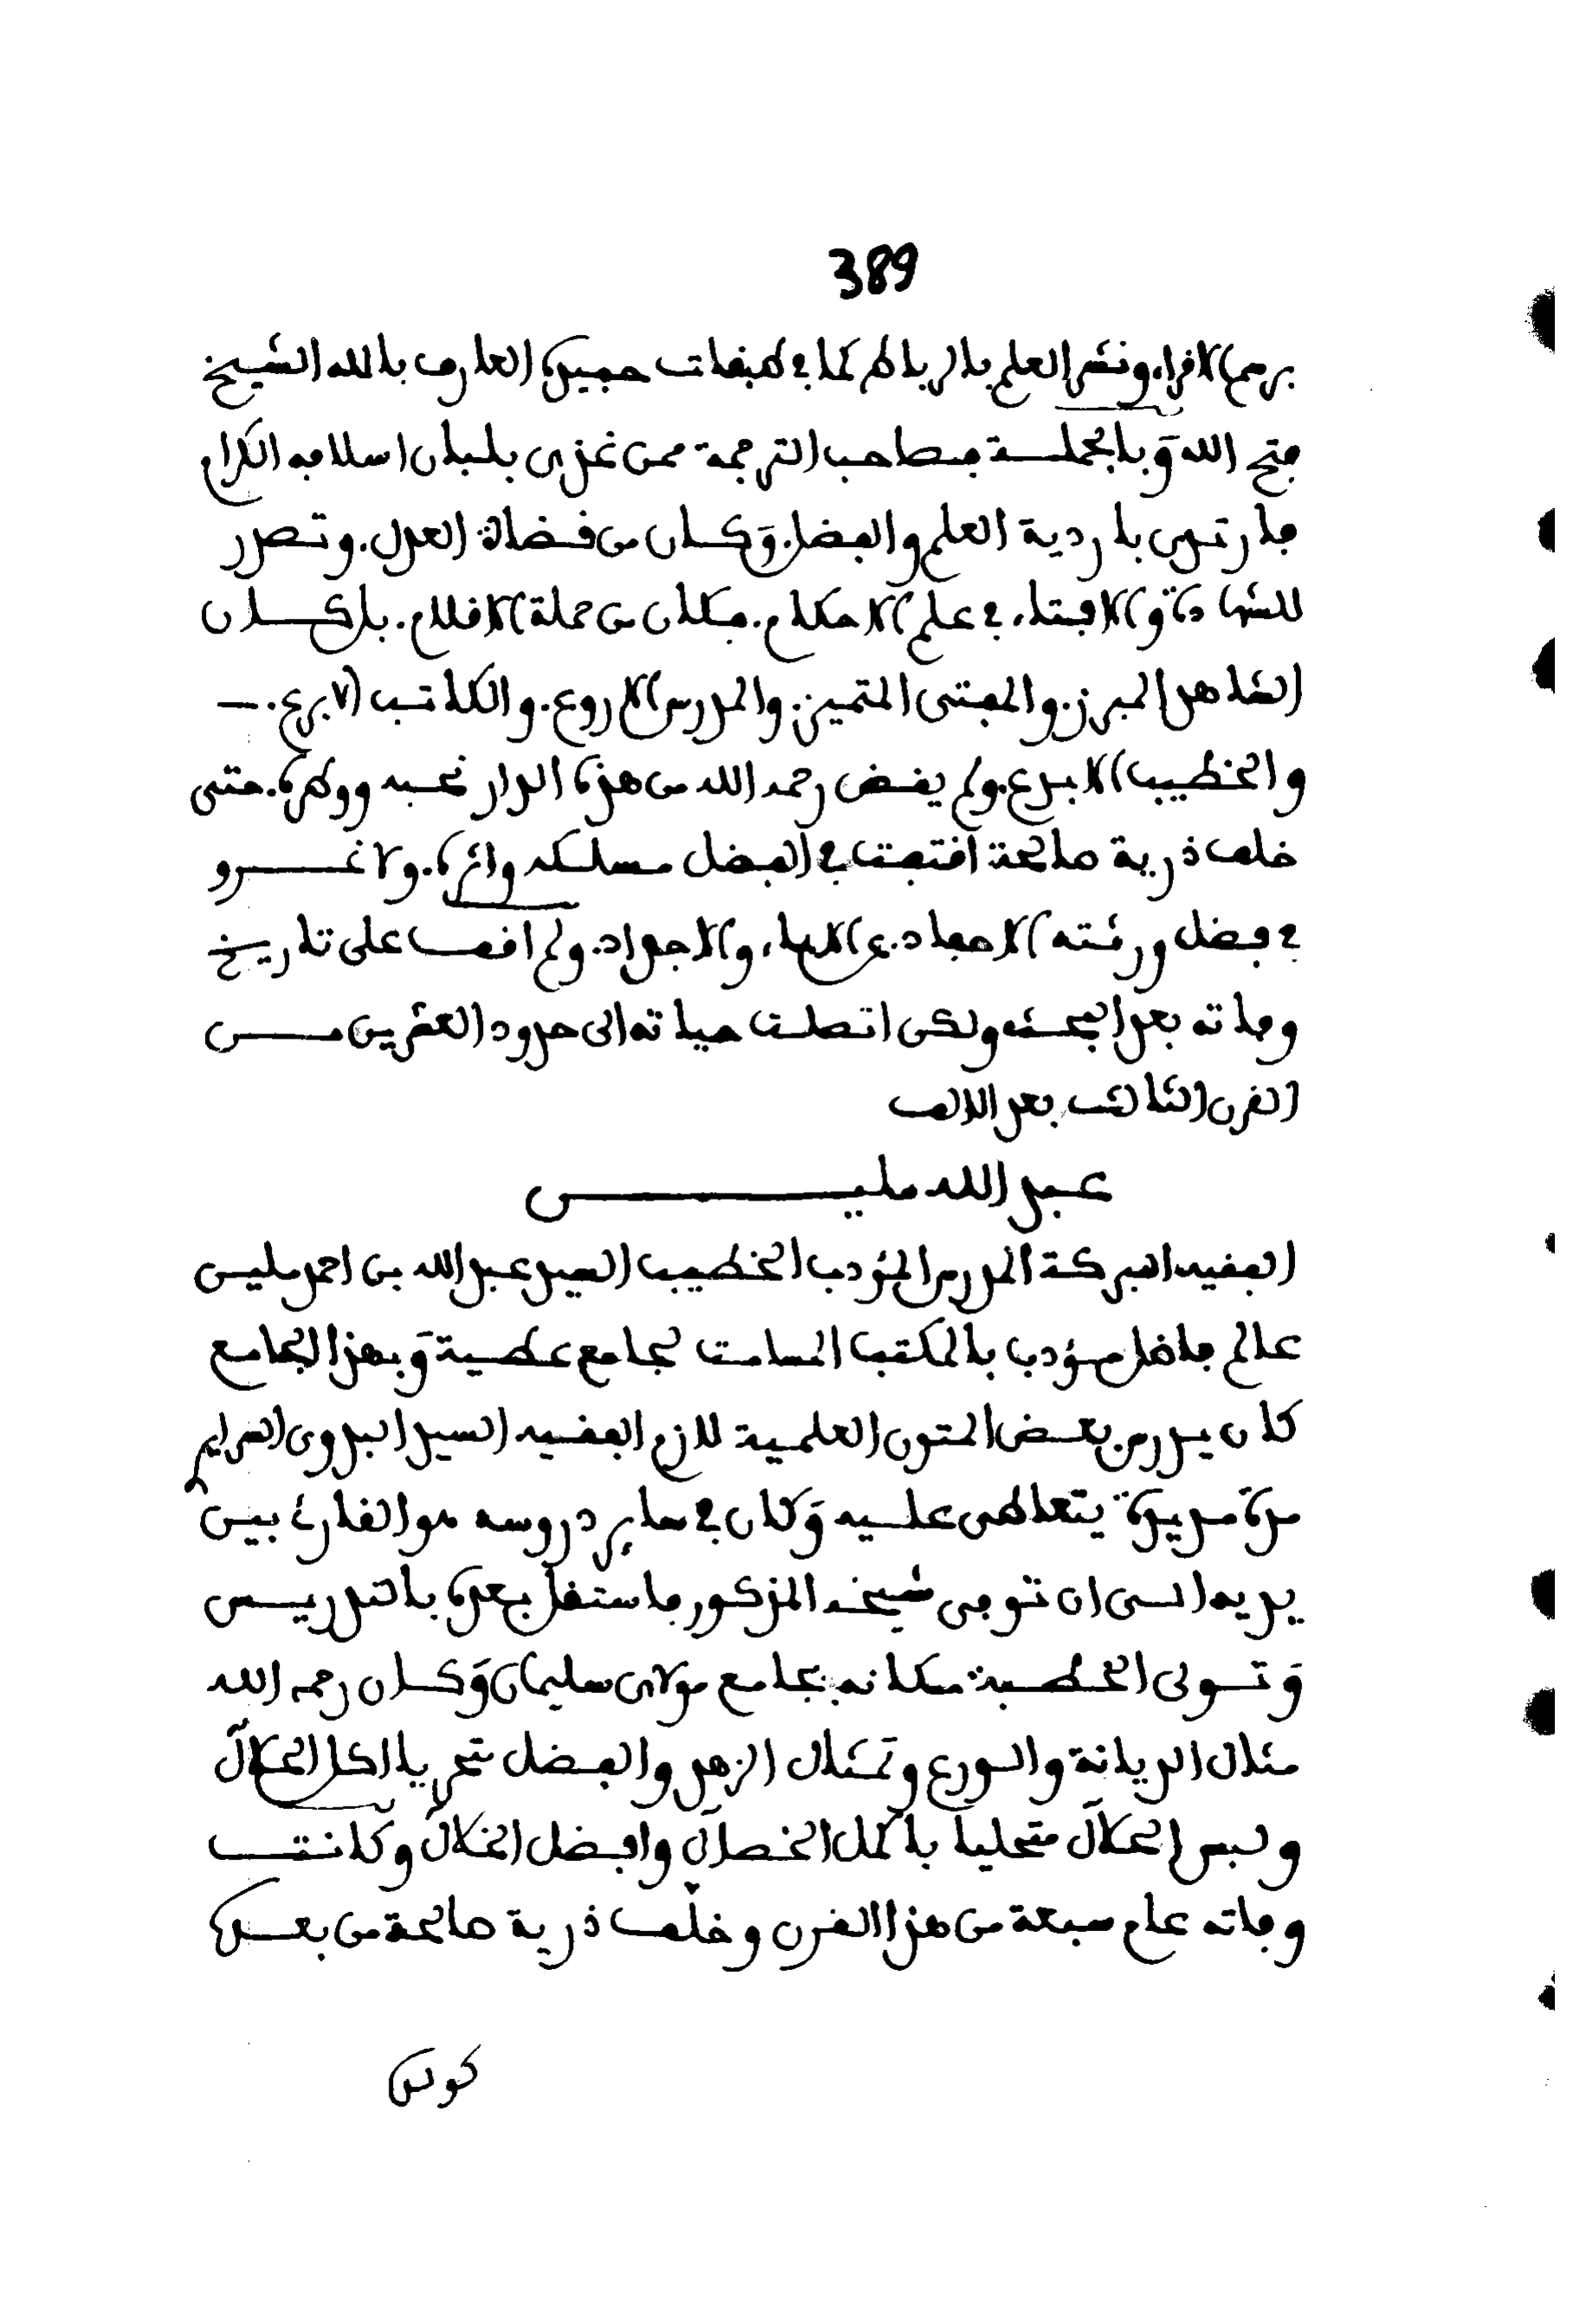 389
برسم الاقراء ونشر العلم بالرباط كما في طبقات حفيده العارف بالله الشيخ
فتح الله وَبالجملة فصاحب الترجمة ممن غذى بلبان اسلافه الكرام
فارتدى باردية العلم والفضل. وَكان من قضاة العدل. وتصدر
للشهادة والافتاء في علم الاحكام. فكان من حملة الاقلام. بل كان
الشاهد المبرز. والمفتى المتميز. والمدرس الاروع. والكاتب الابرع. —
والخطيب الابدع. ولم يقض رحمه الله من هذه الدار نحبه ووطره. حتى
خلف ذرية صالحة اقتفت في الفضل مسلكه واثره. ولا غرو
في فضل ورثته الاحفاد. عن الاباء والاجداد. ولم اقف على تاريخ
وفاته بعد البحث ولكن اتصلت حياته الى حدود العشرين من
القرن الثالث بعد الالف
عبد الله ملين
الفقيه البركة المدرس المؤدب الخطيب السيد عبد الله بن احمد ملين
عالم فاضل مؤدب بالمكتب المسامت لجامع عطية وَبهذا الجامع
كان يدرس بعض المتون العلمية لازم الفقيه السيد البدوى السرايرى
مدة مديدة يتعاطى عليه وَكان في ساير دروسه هو القارئ بين
يديه الى ان توفى شيخه المذكور فاستقل بعده بالتدريس
وَتولى الخطبة مكانه بجامع مولاى سليمان وَكان رحمه الله
مثال الديانة والورع وتمثال الزهد والفضل متحريا اكل الحلال
ولبس الحلال متحليا باكمل الخصال وافضل الخلال وكانت
وفاته عام سبعة من هذا القرن وخلّف ذرية صالحة من بعده